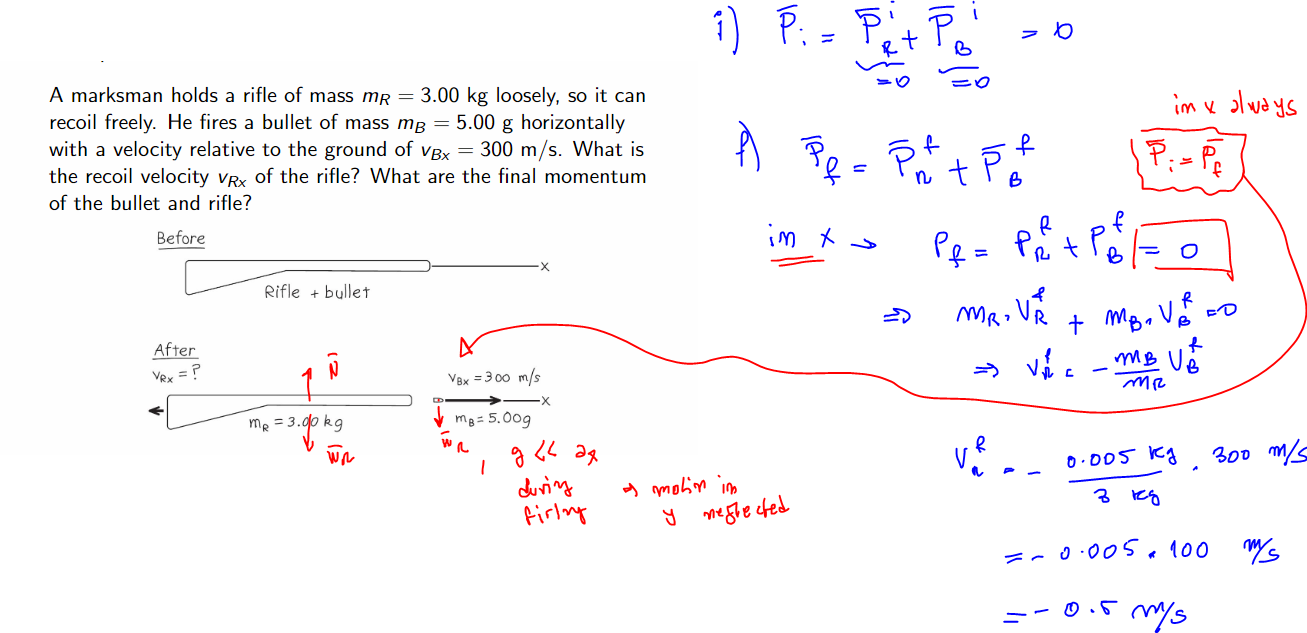 A marksman holds a rifle of mass mR = 3.00 kg loosely, so it can
recoil freely. He fires a bullet of mass mB = 5.00 g horizontally
with a velocity relative to the ground of vBx = 300 m/s. What is
the recoil velocity vRx of the rifle? What are the final momentum
of the bullet and rifle?
Before
x
Rifle + bullet
After
vRx = ?
N̄
mR = 3.00 kg
w̄R
vBx = 300 m/s
x
mB = 5.00g
w̄R, g <<
during
firing
⇒ motion in
y neglected
i) P̄i = P̄R^i + P̄B^i = 0
=0 =0
im x always
P̄i = P̄f
f) P̄f = P̄R^f + P̄B^f
im x → Pf = PR^f + PB^f = 0
⇒ mR . VR^f + mB . VB^f = 0
⇒ VR^f = - mB/mR VB^f
VR^f = - 0.005 kg / 3 kg . 300 m/s
= - 0.005 . 100 m/s
= - 0.5 m/s